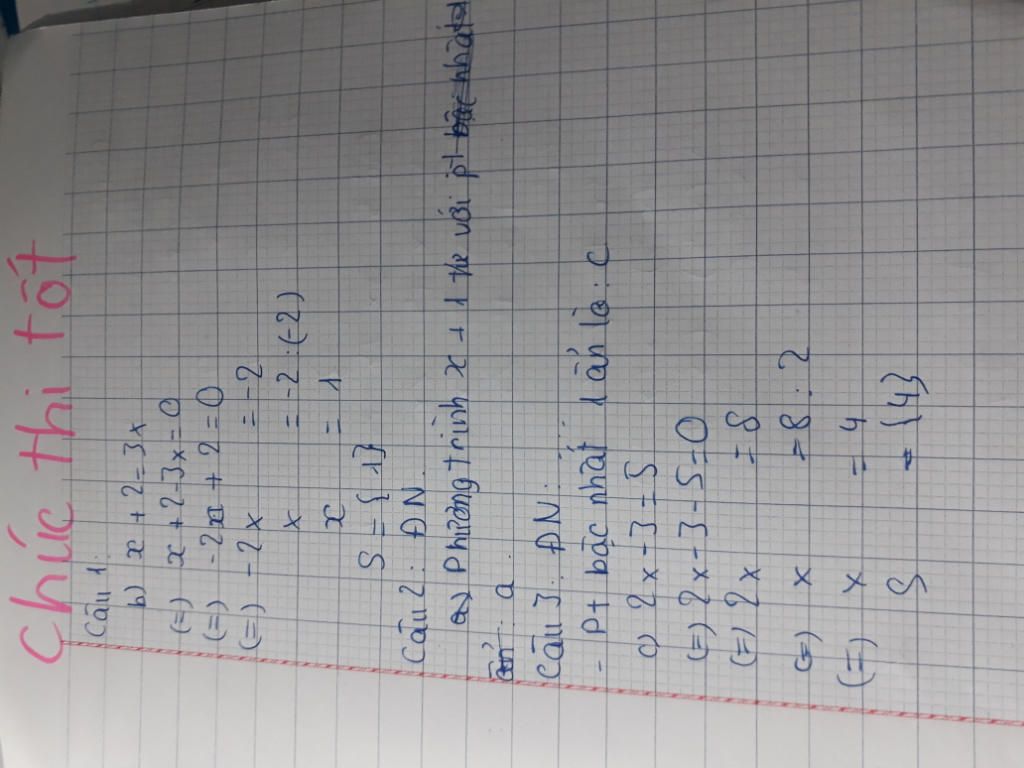 Chúc thi tốt
Câu 1:
b) x + 2 = 3x
(=) x + 2 - 3x = 0
(=) -2x + 2 = 0
(=) -2x = -2
x = -2 : (-2)
x = 1
S = { 1 }
Câu 2: ĐN
a) Phương trình x + 1 với pt bậc nhất
ẩn: a
Câu 3: ĐN:
- Pt bậc nhất 1 ẩn là: c
c) 2x - 3 = 5
(=) 2x - 3 - 5 = 0
(=) 2x = 8
(=) x = 8 : 2
(=) x = 4
S = {4}